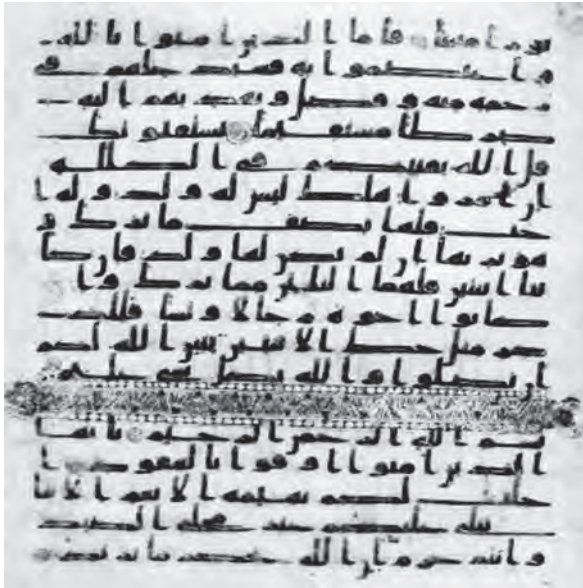 نورا مبينا فاما الذين امنوا بالله
واعتصموا به فسيدخلهم في
رحمة منه وفضل ويهديهم اليه
صرطا مستقيما يستفتونك
قل الله يفتيكم في الكللة
ان امروا هلك ليس له ولد وله ا
خت فلها نصف ما ترك و
هو يرثها ان لم يكن لها ولد فان كا
نتا اثنتين فلهما الثلثن مما ترك وان
كانوا اخوة رجالا ونسا فللذ
كر مثل حظ الانثيين يبين الله لكم
ان تضلوا والله بكل شي عليم
بسم الله الرحمن الرحيم يايها
الذين امنوا اوفوا بالعقود ا
حلت لكم بهيمة الانعم الا ما
يتلى عليكم غير محلي الصيد
وانتم حرم ان الله يحكم ما يريد